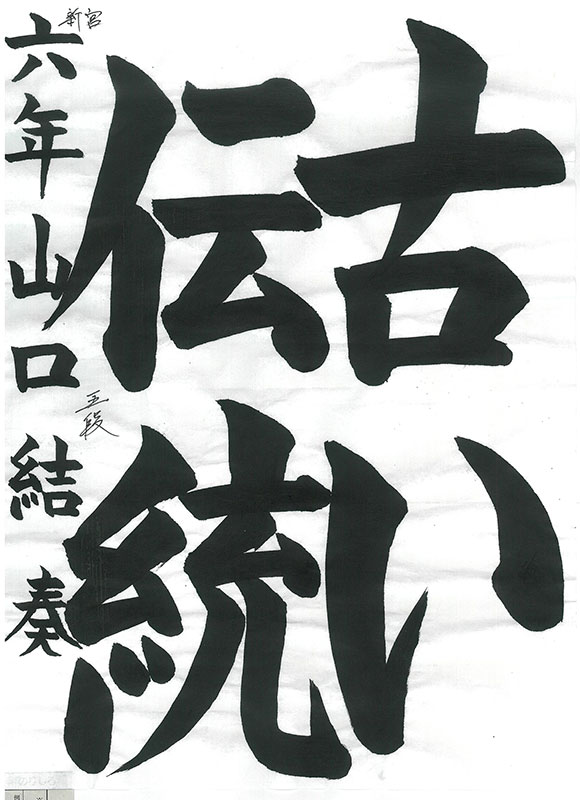 古い
伝統
新宮
六年山口結奏
五段